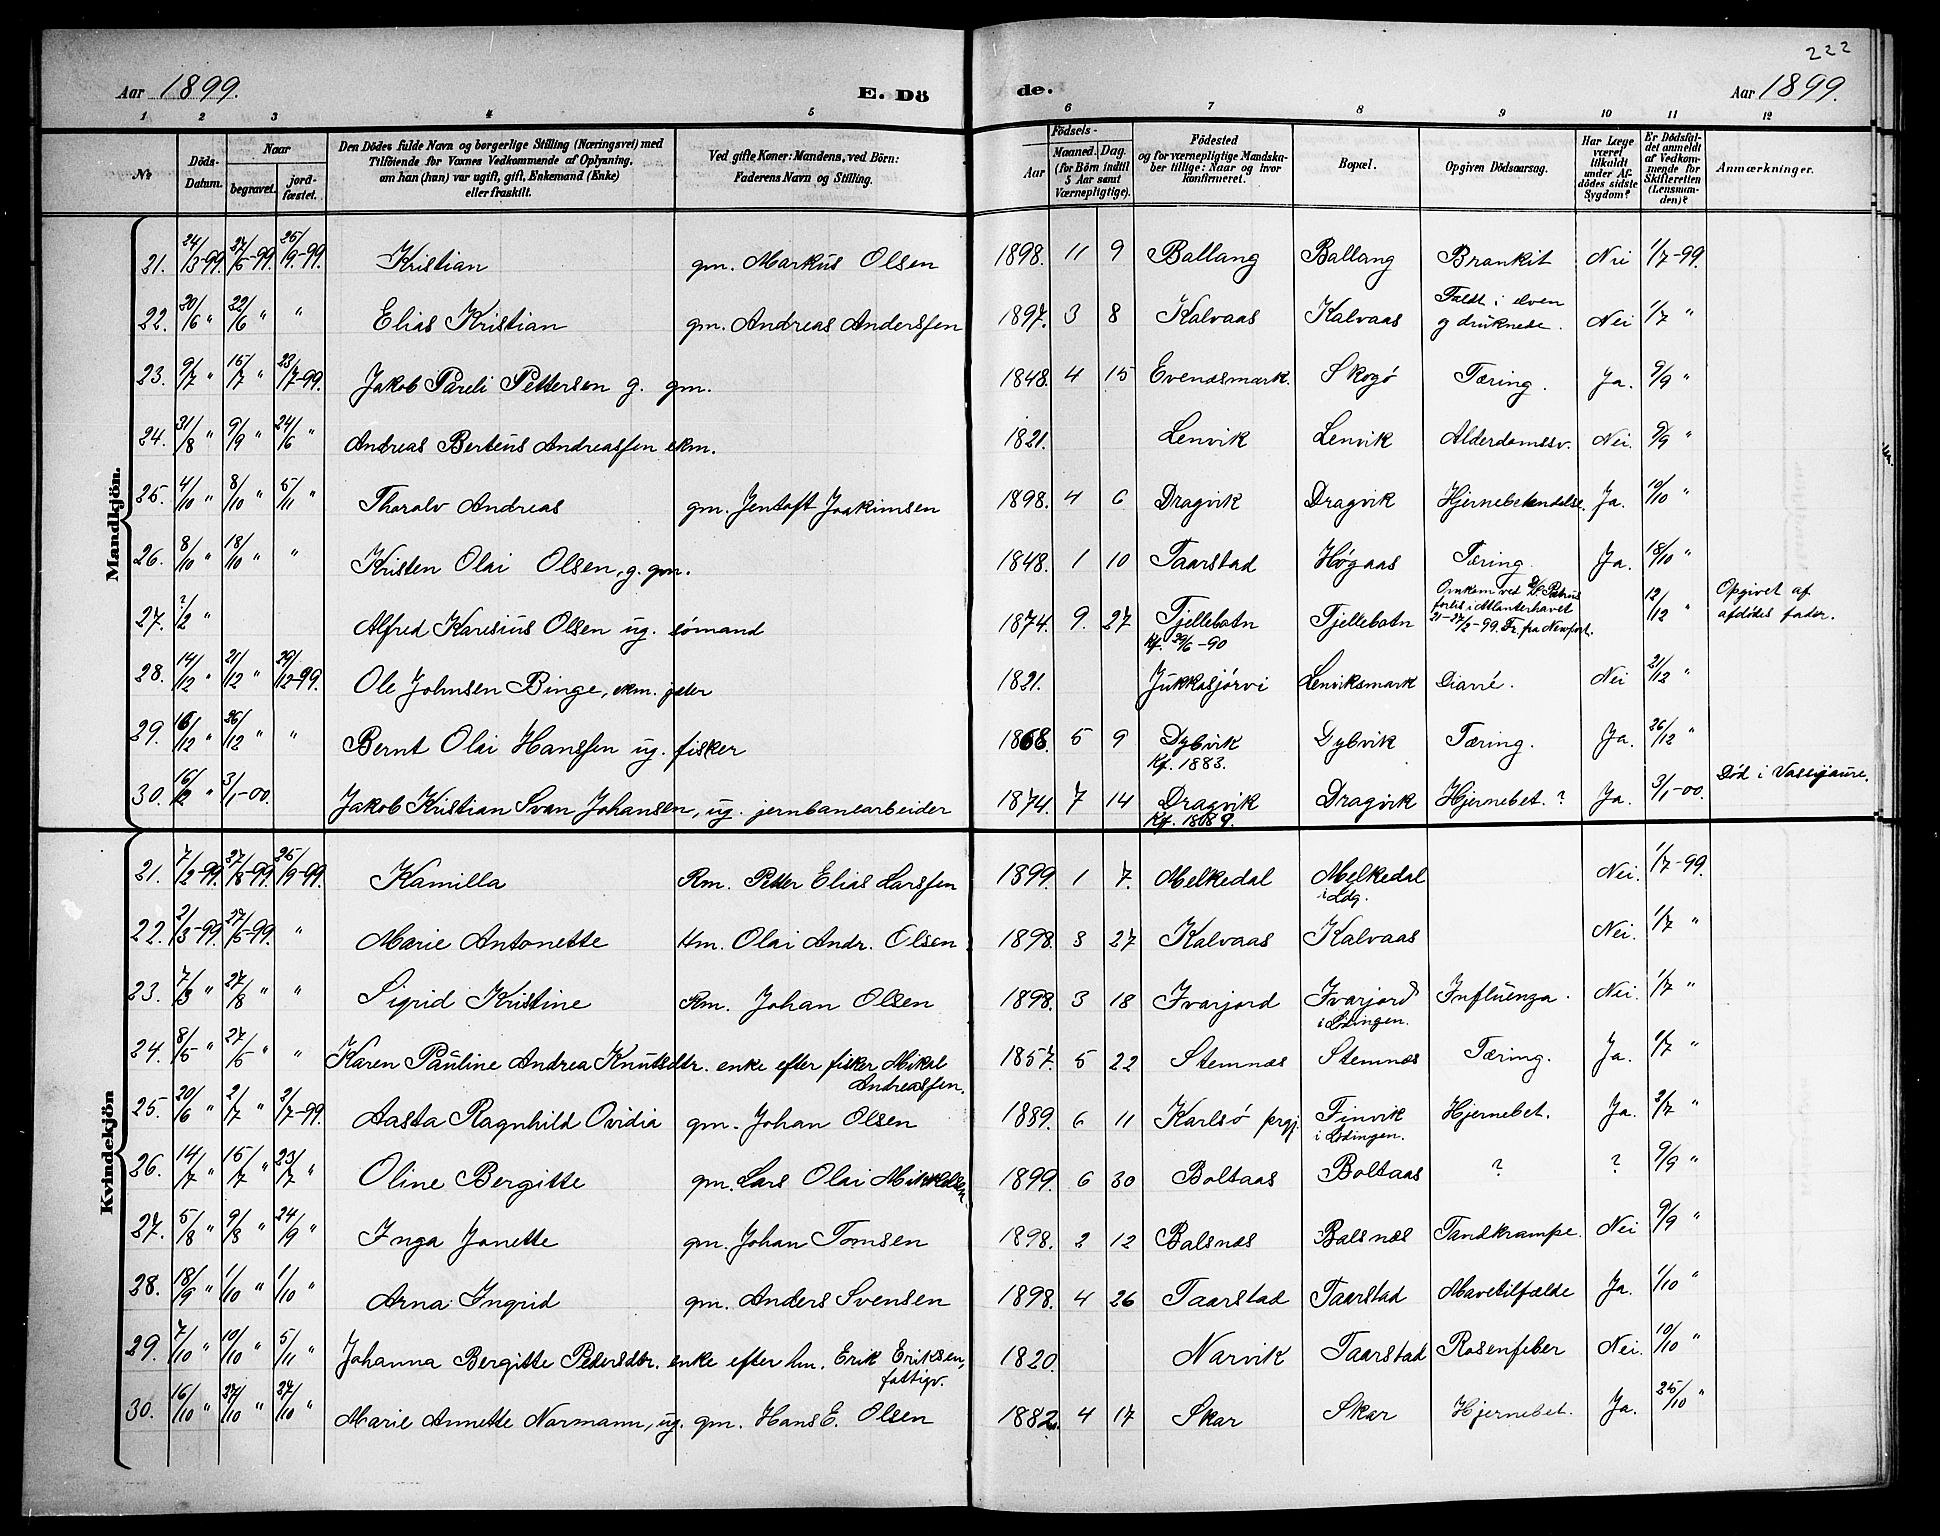 222
Aar 1899. E. Dö de. Aar 1899.
1 2 3 4 5 6 7 8 9 10 11 12
No Döds-Datum. Naar begravet. jordfæstet. Den Dödes fulde Navn og borgerlige Stilling (Næringsvei) med Tilföiende for Voxnes Vedkommende af Oplysning, om han (hun) var ugift, gift, Enkemand (Enke) eller fraskilt. Ved gifte Koner: Mandens, ved Börn: Faderens Navn og Stilling. Födsels- Aar Maaned. Dag. (for Börn indtil 5 Aar samt Værnepligtige). Födested og for værnepligtige Mandskaber tillige: Naar og hvor konfirmeret. Bopæl. Opgiven Dödsaarsag. Har Læge været tilkaldt under Afdödes sidste Sygdom? Er Dödsfaldet anmeldt af Vedkommende for Skifteretten (Lensmanden)? Anmærkninger.
Mandkjön.
21. 24/3-99. 27/5-99. 25/9-99. Kristian gm. Markus Olsen 1898. 11 9 Ballang Ballang Bronkit Nei 1/7-99.
22. 20/6 " 22/6 " " Elias Kristian gm. Andreas Anderssen 1897. 3 8 Kalvaas Kalvaas Faldt i elven og druknede. Nei 1/7 "
23. 9/7 " 15/7 " 23/7-99. Jakob Pareli Pettersen g. gm. 1848. 4 15 Evenæsmark. Skogö Tæring. Ja. 9/9 "
24. 31/8 " 9/9 " 24/6 " Andreas Berteus Andreassen ekm. 1821. Lenvik Lenvik Alderdomssv. Nei. 9/9 "
25. 4/10 " 8/10 " 5/11 " Thoralv Andreas gm. Jentoft Joakimsen 1898. 4 6 Dragvik Dragvik Hjernebetændelse. Ja. 10/10 "
26. 8/10 " 18/10 " " Kristen Olai Olsen, g. gm. 1848. 1 10 Taarstad Høgaas Tæring. Ja. 18/10 "
27. ?/2 " Alfred Karesius Olsen ug. sømand 1874. 9. 27 Tjellebotn Kf. 29/6-90 Tjellebotn Omkom ved D/S Patrias forlis i Atlanterhavet 21-27/2-99. Fr. fra Newport. 12/12 " Opgivet af afdödes fader.
28. 14/12 " 21/12 " 29/12-99. Ole Johnsen Binge, ekm. jeter 1821. Jukkasjörvi Lenviksmark Diarré. Nei 21/12 "
29. 16/12 " 26/12 " " Bernt Olai Hanssen ug. fisker 1868. 5 9 Dybvik Kf. 1883. Dybvik Tæring. Ja. 26/12 "
30. 16/12 " 3/1-00. Jakob Kristian Svan Johansen, ug. jernbanearbeider 1874. 7 14 Dragvik Kf. 1889. Dragvik Hjernebet. ? Ja. 3/1-00. Död i Vassijaure.
Kvindekjön
21. 7/2-99. 27/8-99. 25/9-99. Kamilla Rm. Petter Elias Larssen 1899. 1 7. Melkedal Melkedal i Ldg. Nei. 1/7-99.
22. 2/3-99. 27/5-99. " Marie Antonette Hm. Olai Andr. Olsen 1898. 3 27 Kalvaas Kalvaas Nei. 1/7 "
23. 7/3 " 27/8 " " Sigrid Kristine Rm. Johan Olsen 1898. 3 18 Ivarjord Ivarjord i Lödingen. Influenza. Nei. 1/7 "
24. 8/5 " 27/5 " " Karen Pauline Andrea Knutsdtr. enke efter fisker Mikal Andreassen. 1857. 5 22 Stemnæs Stemnæs Tæring. Ja. 1/7 "
25. 20/6 " 2/7 " 2/7-99. Aasta Ragnhild Ovidia gm. Johan Olsen 1889. 6 11 Karlsö prgj. Finvik i Lödingen. Hjernebet. Ja. 2/7 "
26. 14/7 " 15/7 " 23/7 " Oline Bergitte gm. Lars Olai Mikkelsen 1899. 6 30 Boltaas Boltaas ? ? 9/9 "
27. 5/8 " 9/8 " 24/9 " Inga Janette gm. Johan Tomsen 1898. 2 12 Balsnæs Balsnæs Tandkrampe. Nei 9/9 "
28. 18/9 " 1/10 " 1/10 " Arna Ingrid gm. Anders Svensen 1898. 4 26 Taarstad Taarstad Mavetilfælde Ja. 1/10 "
29. 7/10 " 10/10 " 5/11 " Johanna Bergitte Petersdtr. enke efter hm. Erik Eriksen, fattigv. 1820. Narvik Taarstad Rosenfeber Nei. 10/10 "
30. 16/10 " 27/10 " 27/10 " Marie Annette Normann, ug. gm. Hans E. Olsen 1882. 4 17 Skar Skar Hjernebet. Ja. 25/10 "